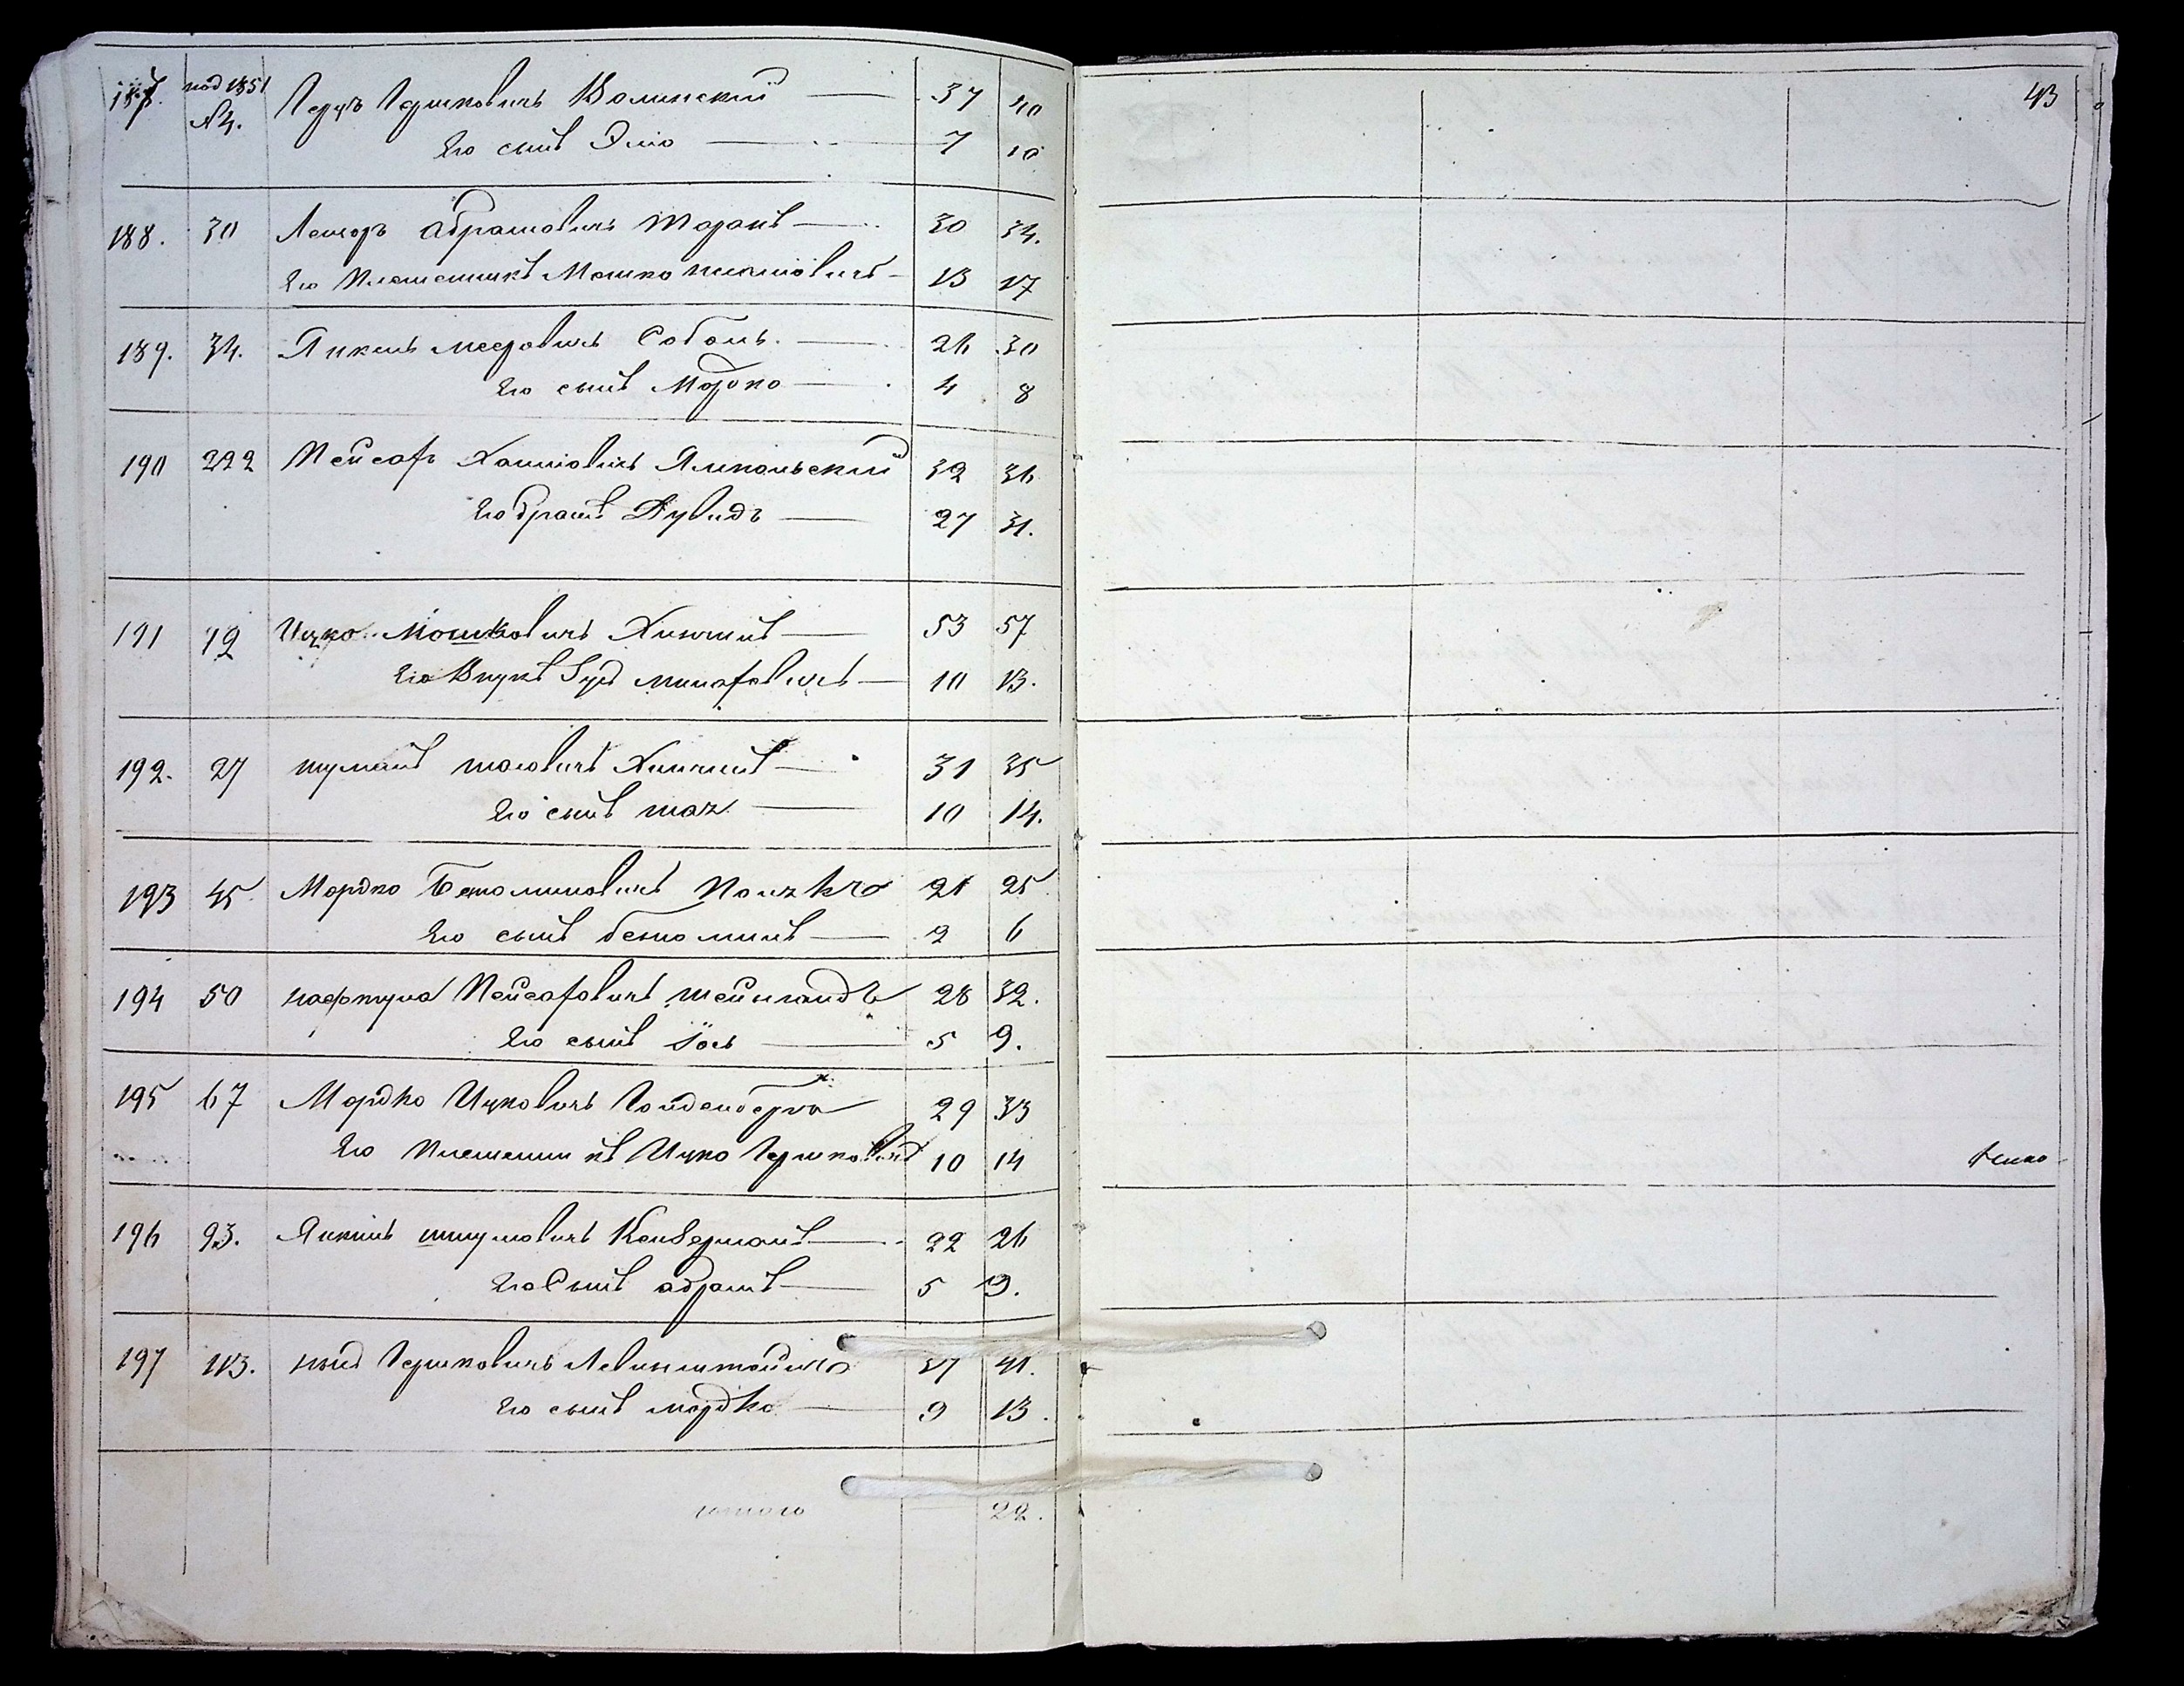 187. под 1851 Герць Гершковичь Волинский — 37 40
№ 4. Его сынъ Элio — 7 10
188. 30 Лейзоръ Абрамовичь Таранъ — 30 34.
Его Племенникъ Мошко — 13 17
189. 34. Янкель Мееровичь Соболь. — 26 30
Его сынъ Мордко — 4 8
190 222 Пейсахъ Хаимовичь Ямпольский 32 36
Его братъ Дувидъ — 27 31.
191 19 Ицко Мошковичь — 53 57
Его Внукъ — 10 13.
192. 27 шулимъ — 31 35
Его сынъ — 10 14.
193 45 Мордко Беньоминовичь 21 25
Его сынъ беньоминъ — 2 6
194 50 нафтула Пейсаховичь 28 32.
Его сынъ Iось — 5 9.
195 67 Мордко Ицковичь Гольденберга 29 33
Его Племенникъ Ицко Гершковичъ 10 14
196 93. Янкель шмулювичь — 22 26
Его Сынъ абрамъ — 5 9.
197 113. Гершковичь Левинштейна 37 41.
Его сынъ мордко — 9 13.
итого 22.
43